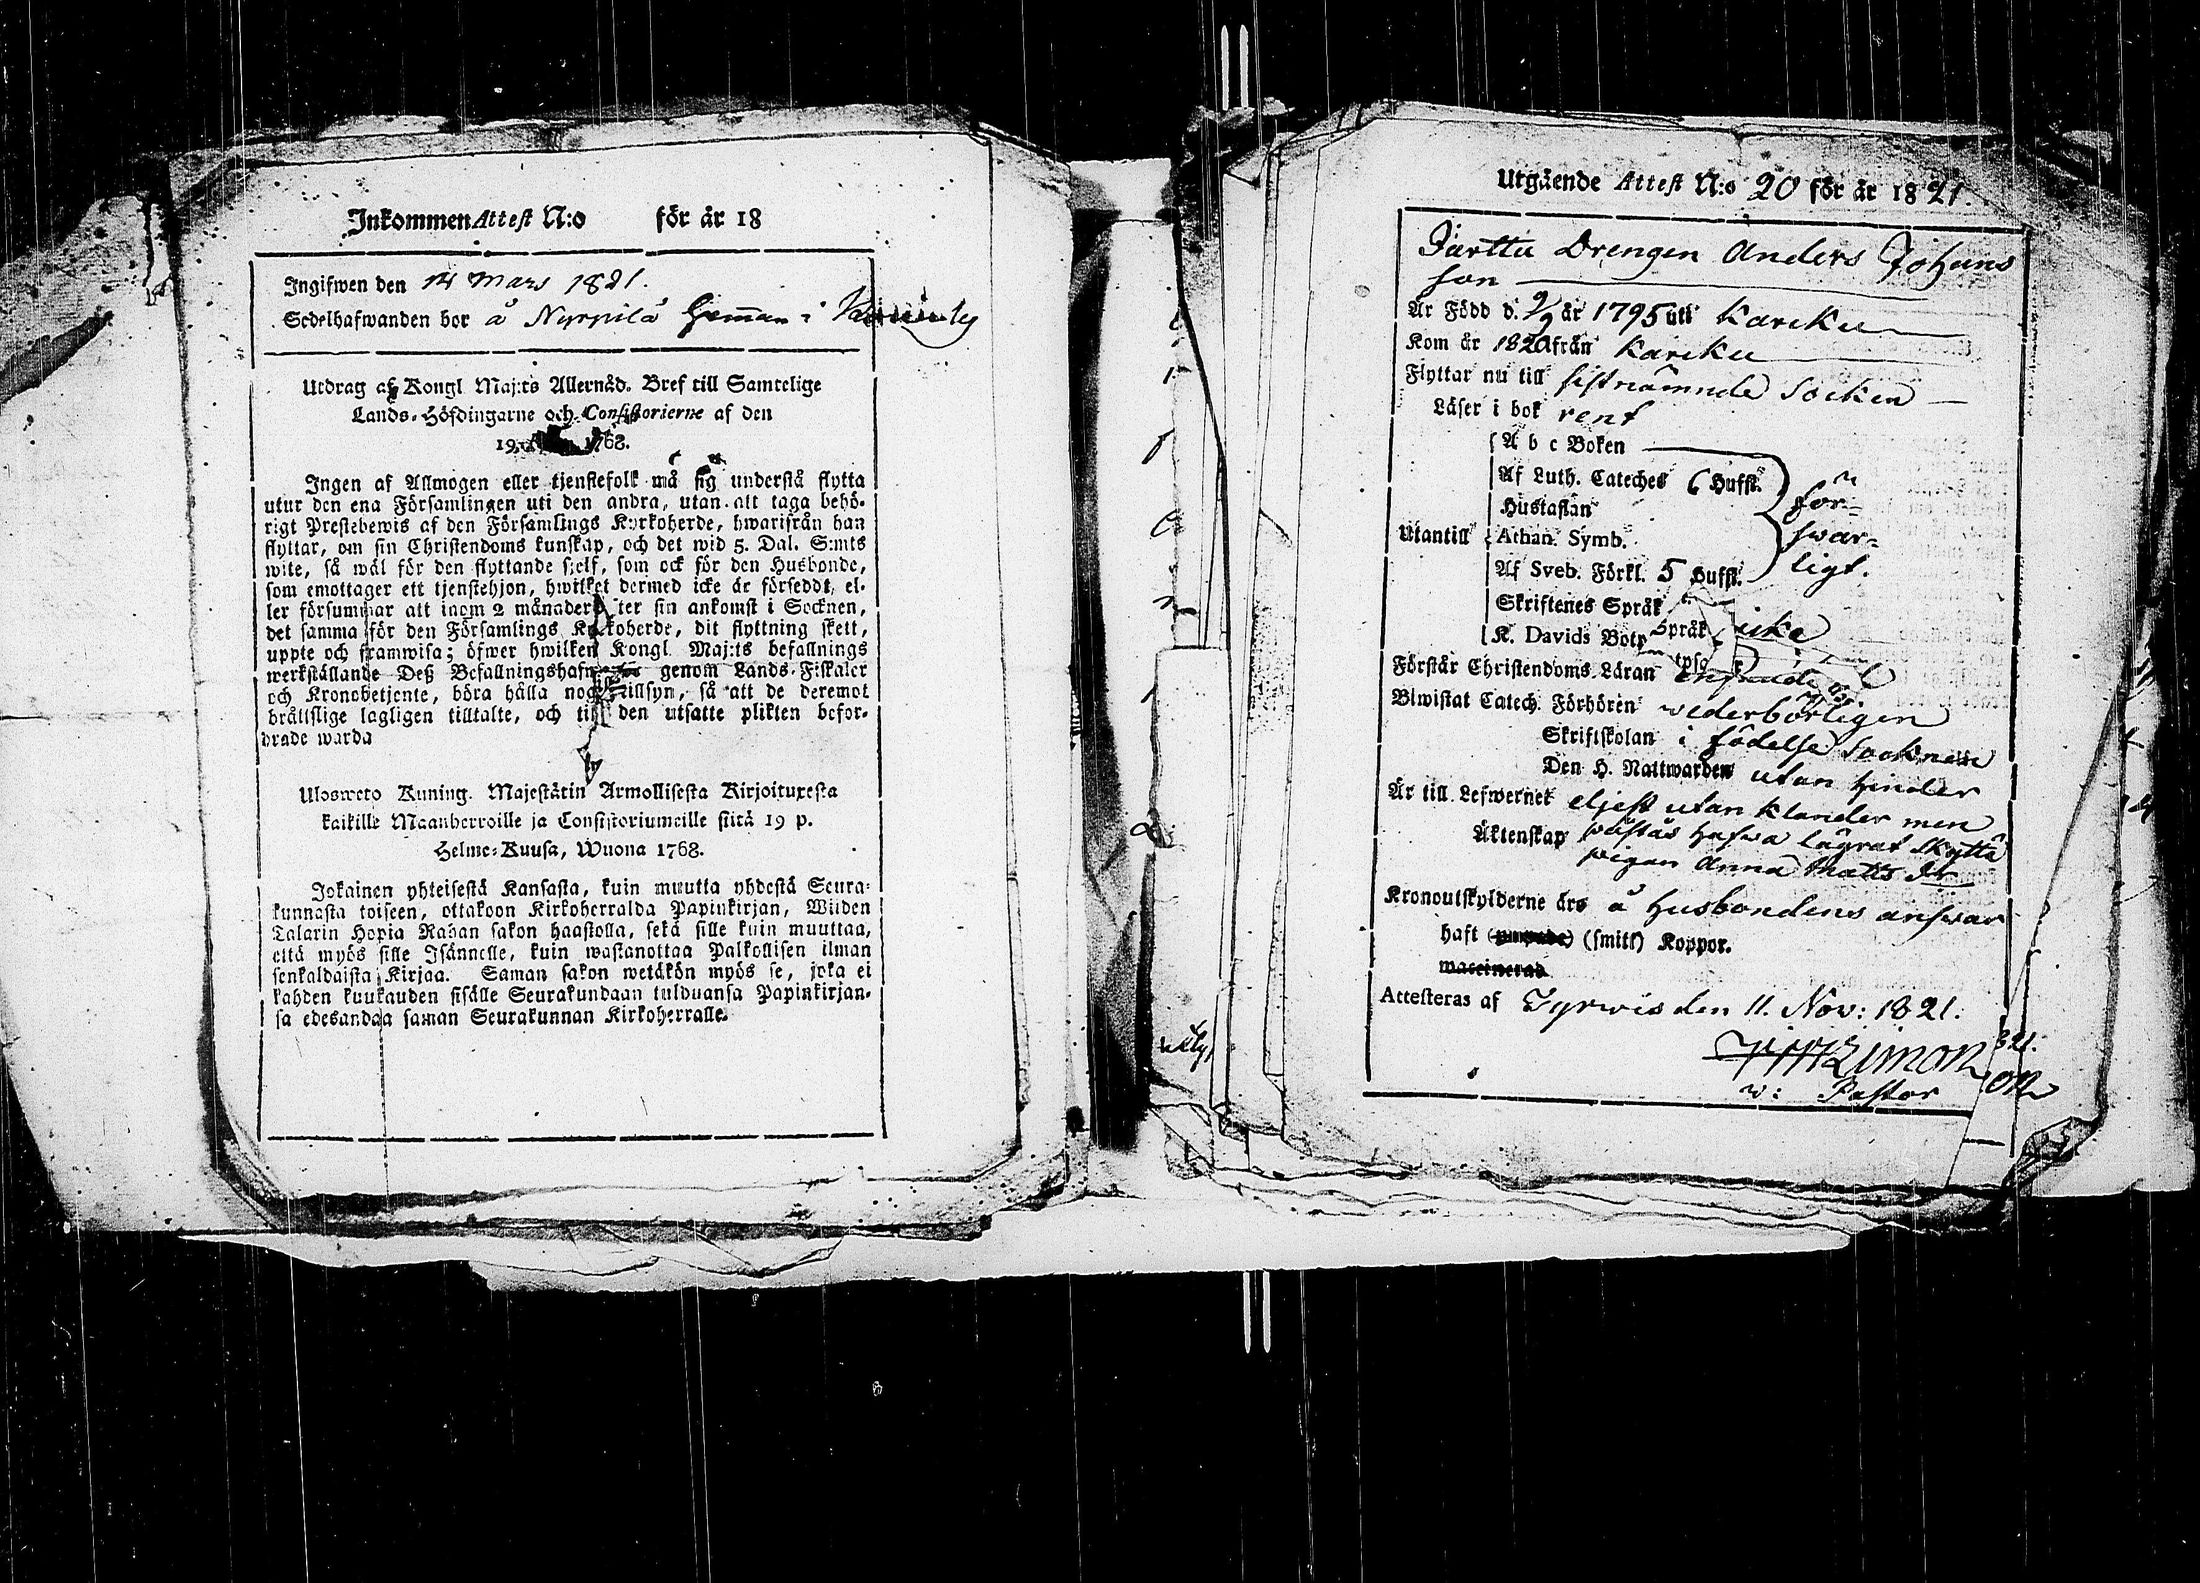 Inkommen Attest N:o för år 18
Ingifwen den 14 Mars 1821.
Sedelhafwanden bor å Nyrpilä Hemman i
Utdrag af Kongl Maj:ts Allernåd. Bref till Samtelige
Lands-Höfdingarne och Consistorierne af den
19 1768.
Ingen af Allmogen eller tjenstefolk må sig understå flytta
utur den ena Församlingen uti den andra, utan att taga behö-
rigt Prestebewis af den Församlings Kyrkoherde, hwarifrån han
flyttar, om sin Christendoms kunskap, och det wid 5. Dal. S:mts
wite, så wäl för den flyttande sjelf, som ock för den Husbonde,
som emottager ett tjenstehjon, hwilket dermed icke är förseddt, el-
ler försummar att inom 2 månader ter sin ankomst i Socknen,
det samma för den Församlings Kyrkoherde, dit flyttning skett,
uppte och framwisa; öfwer hwilken Kongl. Maj:ts befallnings
werkställande Deß Befallningshafwande genom Lands-Fiskaler
och Kronobetjente, böra hålla noga tillsyn, så att de deremot
bråttslige lagligen tilltalte, och till den utsatte plikten befor-
drade warda
Ulosweto Kuning. Majestätin Armollisesta Kirjoituxesta
kaikille Maanherroille ja Consistoriumeille siitä 19 p.
Helme-Kuusa, Wuona 1768.
Jokainen yhteisestä Kansasta, kuin muutta yhdestä Seura-
kunnasta toiseen, ottakoon Kirkoherralda Papinkirjan, Wiiden
Talarin Hopia Rahan sakon haastolla, sekä sille kuin muuttaa,
että myös sille Isännelle, kuin wastanottaa Palkollisen ilman
senkaldaista Kirjaa. Saman sakon wetäkön myös se, joka ei
kahden kuukauden sisälle Seurakundaan tulduansa Papinkirjan-
sa edesandaa saman Seurakunnan Kirkoherralle.
Utgående Attest N:o 20 för år 1821.
Drengen Anders Johans
son
Är Född d. 9/9 år 1795 uti Karcku
Kom år 1820 från Karcku
Flyttar nu till sistnämnde Socken
Läser i bok rent
A b c Boken
Af Luth. Cateches 6 Hufst.
Hustaflan
Utantill Athan. Symb.
Af Sveb. Förkl. 5 Hufst.
för-
swar-
ligt.
Skriftenes Språk
K. Davids Botp Språk icke
Förstår Christendoms Läran
Biwistat Catech. Förhören wederbörligen
Skriftskolan i födelse Socknen
Den H. Nattwarden utan hinder
Är till Lefwernet eljest utan klander men
Äktenskap påstås hafwa lägrat Skyttä
pigan Anna Matts dr
Kronoutskylderne års å Husbondens answar
haft (smitt) Koppor.
Attesteras af Tyrwis den 11. Nov: 1821.
Limon
w: Pastor